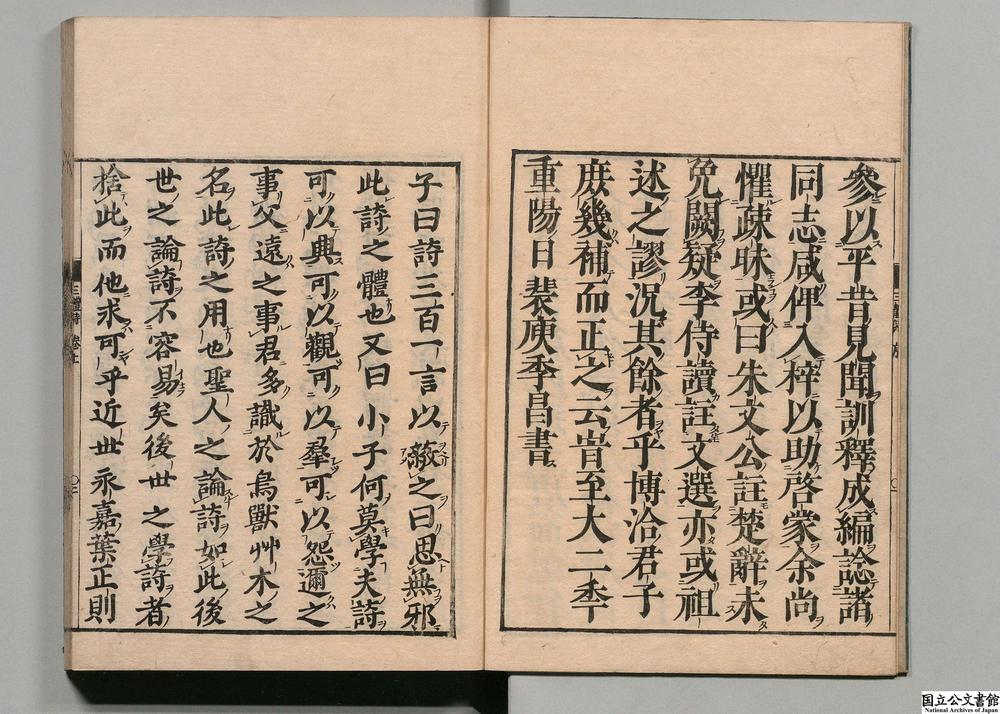 參以平昔見聞訓釋成編諗諸
同志咸俾入梓以助啓蒙余尚
懼疎昧或曰朱文公註楚辭未
免闕疑李侍讀註文選亦或祖
述之謬況其餘者乎博洽君子
庶幾補而正之云旹至大二秊
重陽日裴庾季昌書
子曰詩三百一言以蔽之曰思無邪
此詩之體也又曰小子何莫學夫詩
可以興可以觀可以羣可以怨邇之
事父遠之事君多識於鳥獸艸木之
名此詩之用也聖人之論詩如此後
世之論詩不容易矣後世之學詩者
捨此而他求可乎近世永嘉葉正則
三體詩
国立公文書館
National Archives of Japan